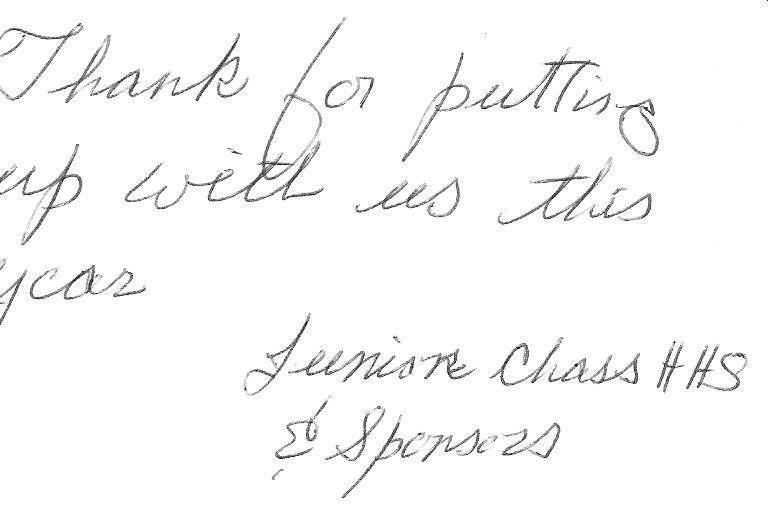 Thank for putting
up with us this
year
Juniors Class HHS
& Sponsors